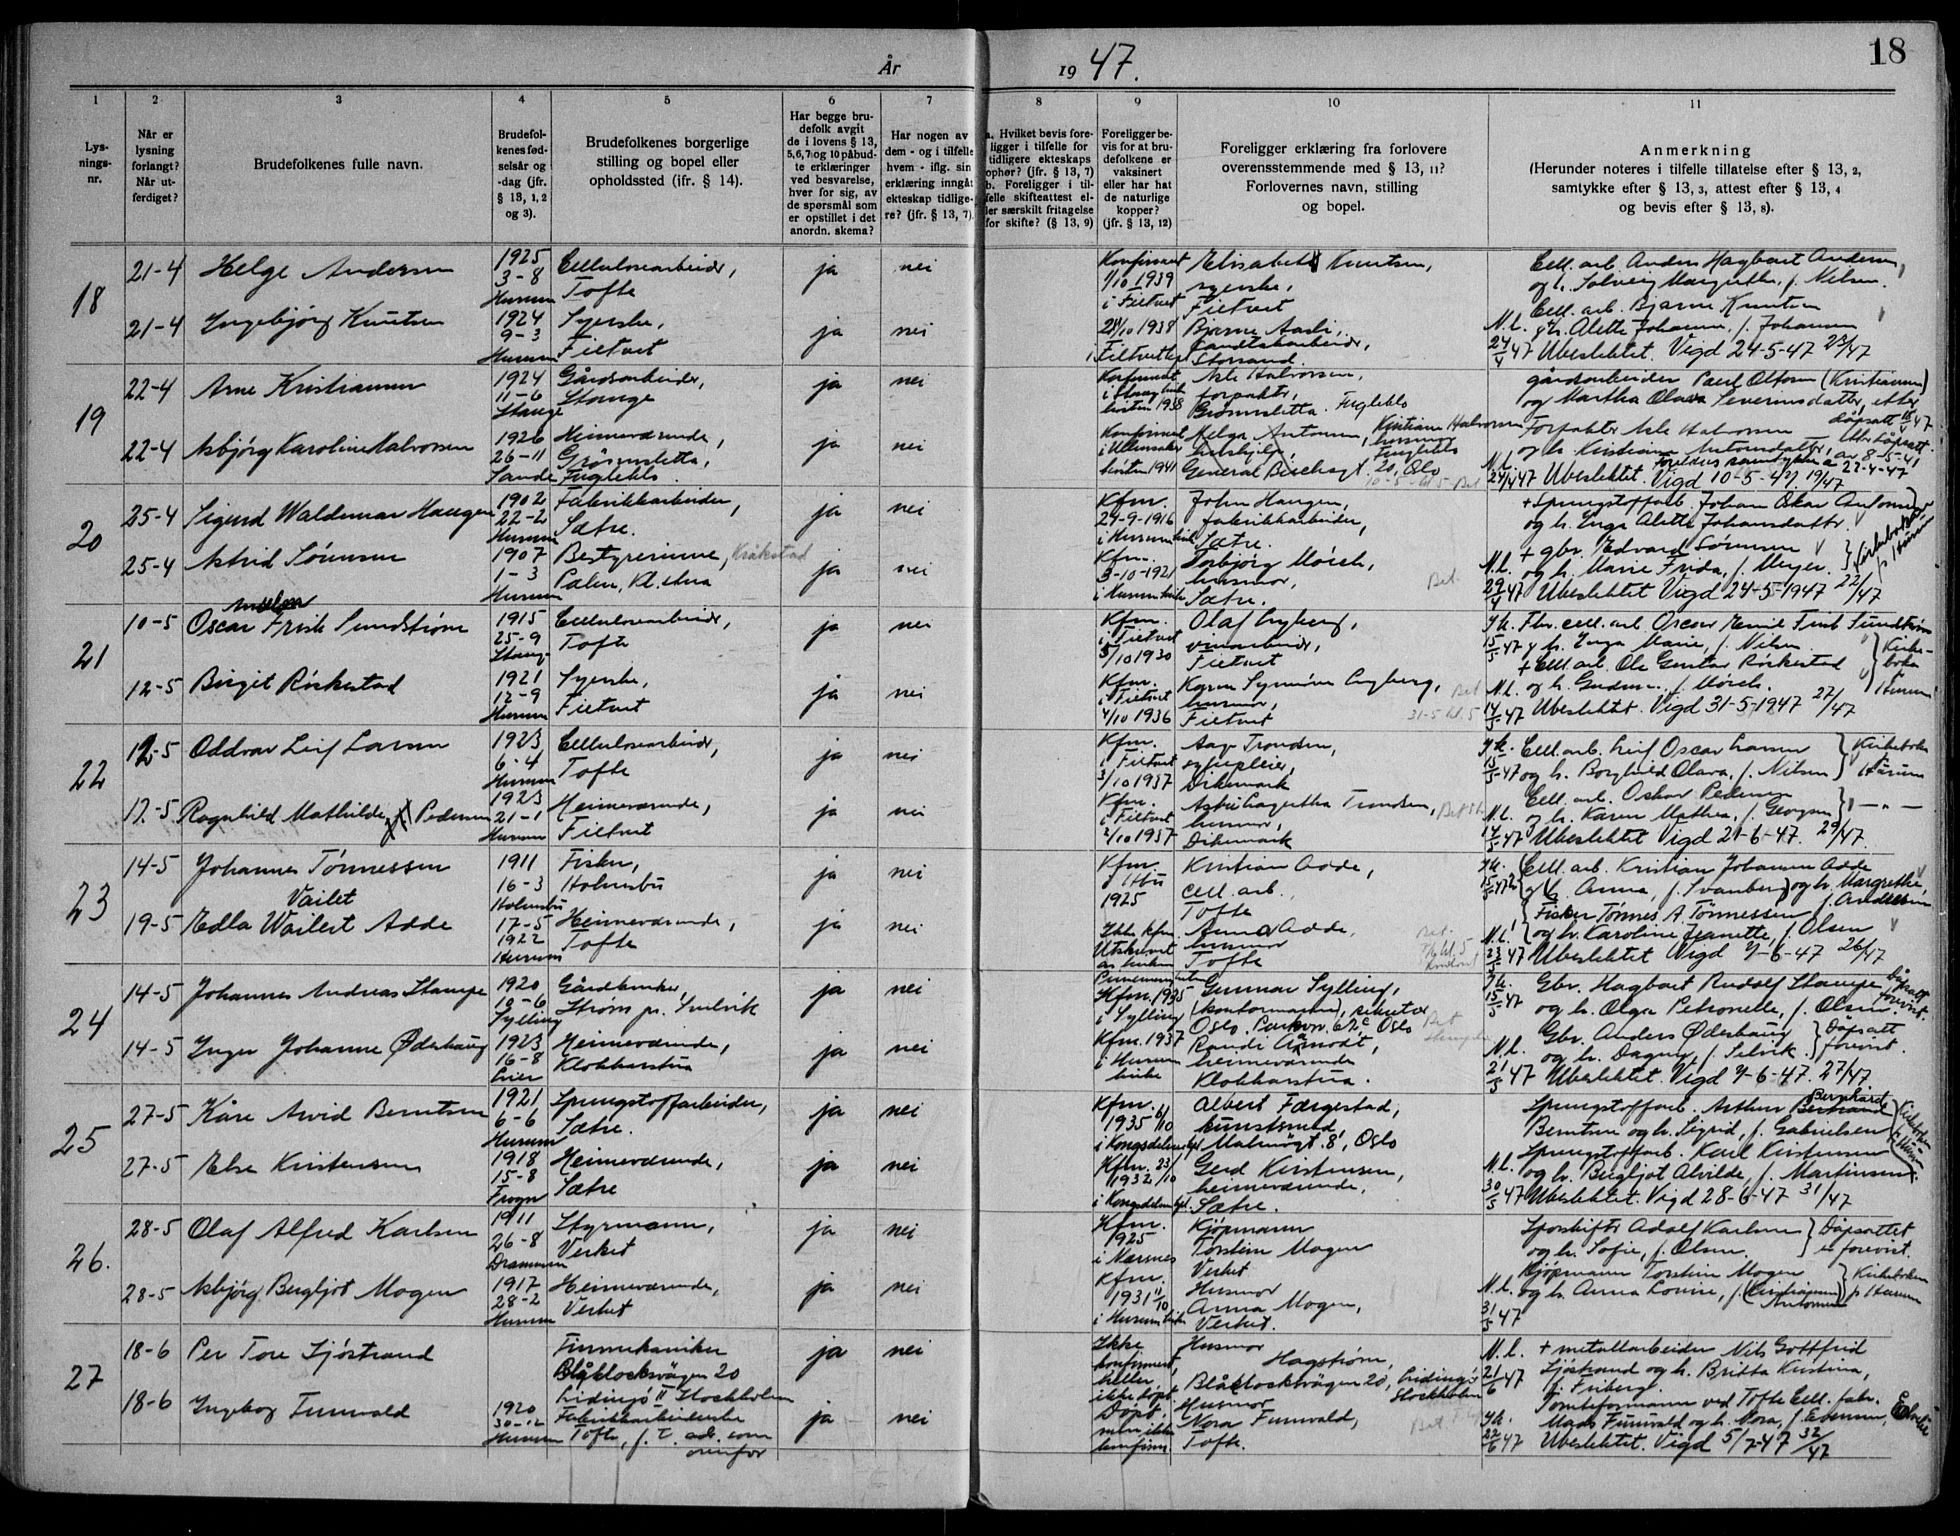 18
År 1947.
1 2 3 4 5 6 7 8 9 10 11
Lys-
nings-
nr.
Når er
lysning
forlangt?
Når ut-
ferdiget?
Brudefolkenes fulle navn.
Brudefol-
kenes fød-
selsår og
-dag (jfr.
§ 13, 1, 2
og 3).
Brudefolkenes borgerlige
stilling og bopel eller
opholdssted (ifr. § 14).
Har begge bru-
defolk avgit
de i lovens § 13,
5,6,7 og 10 påbud-
te erklæringer
ved besvarelse,
hver for sig, av
de spørsmål som
er opstillet i det
anordn. skema?
Har nogen av
dem - og i tilfelle
hvem - iflg. sin
erklæring inngåt
ekteskap tidlige-
re? (jfr. § 13, 7).
a. Hvilket bevis fore-
ligger i tilfelle for
tidligere ekteskaps
ophør? (jfr. § 13, 7)
b. Foreligger i til-
felle skifteattest el-
ler særskilt fritagelse
for skifte? (§ 13, 9)
Foreligger be-
vis for at bru-
defolkene er
vaksinert
eller har hat
de naturlige
kopper?
(jfr. § 13, 12)
Foreligger erklæring fra forlovere
overensstemmende med § 13, 11?
Forlovernes navn, stilling
og bopel.
Anmerkning
(Herunder noteres i tilfelle tillatelse efter § 13, 2,
samtykke efter § 13, 3, attest efter § 13, 4
og bevis efter § 13, 8).
18
21-4 Helge Andersen 1925 3-8 Hurum Cellulosearbeider, Tofte ja nei
Konfirmert 1/10 1939 i Filtvet
Elisabeth Knutsen, syerske, Filtvet
Cell. arb. Anders Hagbart Andersen,
og h. Solveig Margrethe, f. Nilsen.
21-4 Ingebjørg Knutsen 1924 9-3 Hurum Syerske, Filtvet ja nei
Bjarne Aasli, Storsand.
Cell. arb. Bjarne Knutsen
og h. Alette Johanne, f. Johansen
N.l. 24/4 47 Ubeslektet. Vigd 24-5-47 23/47
19
22-4 Arne Kristiansen 1924 11-6 Stange Gårdsarbeider, Stange ja nei
Konfirmert i Stange kirke høsten 1938
Asle Halvorsen, forpakter, Grønnsletta. Fuglebls
gårdsarbeider Paul Olsen (Kristiansen)
og Martha Olava Severinsdatter,
22-4 Asbjørg Karoline Halvorsen 1926 26-11 Sande Heimeværende, Grønnsletta, Fuglebls. ja nei
Konfirmert i Ullensaker høsten 1941
Helga Antonsen, Kristiane Halvorsen husmor
General Birchsgt. 20, Oslo
Forpakter Asle Halvorsen
og h. Kristiane Antonsdatter,
N.l. 24/4 47 Ubeslektet. Vigd 10-5-47. 19/47
20
25-4 Sigurd Waldemar Haugen 1902 22-2 Hurum Fabrikkarbeider, Sætre. ja nei
Kfm. 24-9-1916 i Hurum kirke
John Haugen, fabrikkarbeider, Sætre.
+ Sprengstoffarb. Johan Oskar Antonsen
og h. Inga Alette Johansdatter
25-4 Astrid Sørensen 1907 1-3 Hurum Bestyrerinne, Kråkstad ja nei
Kfm. 3-10-1921 i Hurum kirke
Torbjørg Mørch, husmor, Sætre. Bet.
+ gbr. Edvard Sørensen
og h. Marie Frida, f. Meyer.
N.l. 29/4 47 Ubeslektet Vigd 24-5-1947 22/47
21
10-5 Oscar Frisk Sundstrøm 1915 25-9 Stange Cellulosearbeider, Tofte ja nei
Kfm. i Filtvet 5/10 1930
Olaf Engberg, Filtvet
Fhv. cell. arb. Oscar Emil Frisk Sundstrøm
15/5 47 og h. Inga Marie, f. Nilsen
12-5 Birgit Rörkestad 1921 12-9 Hurum Syerske, Filtvet ja nei
Kfm. i Filtvet 4/10 1936
Karen Synnöve Engberg, husmor, Filtvet Bet 31-5 kl. 5
+ Cell. arb. Ole Gustav Rörkestad
og h. Gudrun, f. Mørch.
N.l. 14/5 47 Ubeslektet. Vigd 31-5-1947 27/47
22
12-5 Oddvar Leif Larsen 1923 6-4 Hurum Cellulosearbeider, Tofte ja nei
Kfm. i Filtvet 3/10 1937
Aage Tronsen, sykepleier, Dikemark
Cell. arb. Leif Oscar Larsen
og h. Borghild Olava, f. Nilsen
Kirkeboka i Hurum
12-5 Ragnhild Mathilde Pedersen 1923 21-1 Hurum Heimeværende, Filtvet ja nei
Kfm. i Filtvet 2/10 1937
Tronsen, husmor, Dikemark
Cell. arb. Oskar Pedersen
og h. Karen Mathea, f. Georgsen
N.l. 14/5 47 Ubeslektet Vigd 21-6-47. 29/47.
23
14-5 Johannes Tønnessen 1911 16-3 Holmsbu Fisker, Holmsbu ja nei
Kfm. 1925
Kristian Adde, cell. arb. Tofte
Cell. arb. Kristian Johannes Adde
Vailet
19-5 Edla Wailert Adde 17-5 1922 Hurum Heimeværende, Tofte ja nei
Ikke kfm.
Anna Adde, husmor Tofte
Fisker Tönnes A. Tönnessen
og h. Karoline Jeanette, f. Olsen
N.l. 23/5 47 Ubeslektet Vigd 7-6-47 26/47
24
14-5 Johannes Andreas Stampe 1920 10-6 Sylling Gårdbruker, Strøm pr. Svelvik ja nei
Kfm. 1935 i Sylling
Gunnar Sylling, (kontormann), sekretær Oslo. Parkvn. 62c Oslo
15/5 47 Gbr. Hagbart Rudolf Stampe
og h. Olga Petronelle, f. Olsen
14-5 Inger Johanne Ødehaug 1923 16-8 Lier Heimeværende, Klokkarstua ja nei
Kfm. 1937 i Hurum kirke
Randi Åmodt, heimeværende Klokkarstua.
Gbr. Anders Ødehaug
og h. Dagny, f. Selvik.
Dåpsatt. forevist.
N.l. 21/5 47 Ubeslektet. Vigd 7-6-47. 27/47
25
27-5 Kåre Arvid Berntsen 1921 6-6 Hurum Sprengstoffarbeider, Sætre. ja nei
Kfm. 1935 6/10
Albert Færgestad, kunstsmed Malmøgt. 8, Oslo
Sprengstoffarb. Arthur Bernhard
Berntsen og h. Sigrid, f. Gabrielsen
27-5 Else Kristensen 1918 15-8 Frogn Heimeværende, Sætre ja nei
Kfm. 23/10 1932
Gerd Kristensen, heimeværende, Sætre.
Sprengstoffarb. Karl Kristensen
og h. Bergljot Alvilde, f. Martinsen
N.l. 30/5 47 Ubeslektet. Vigd 28-6-47 31/47
26.
28-5 Olaf Alfred Karlsen 1911 26-8 Drammen Styrmann, Verket ja nei
Kfm. 1925 i Nærsnes
Kjøpmann Torstein Mogen Verket
Adolf Karlsen
og h. Sofie, f. Olsen.
Dåpsattet er forevist.
28-5 Asbjørg Bergljot Mogen 1917 28-2 Hurum Heimeværende, Verket ja nei
Kfm. 1931 11/10 i Hurum kirke
Husmor Anna Mogen, Verket.
Kjöpmann Torstein Mogen
og h. Anna Lovise, f. (Kristiansen) Antonsen
N.l. 31/5 47
27
18-6 Per Tore Sjöstrand Finmekaniker Blåklocksvägen 20 Lidingö II Stockholm ja nei
Ikke konfirmert, heller ikke döpt
Husmor Hagström, Blåklocksvägen 20, Lidingö, Stockholm
N.l. 21/6 47 + metallarbeider Nils Gottfrid
Sjöstrand og h. Britta Kristina,
f. Friberg.
18-6 Ingeborg Funwald 1920 30-12 Hurum Fabrikkarbeiderske Tofte, f. t. adr. som ovenfor ja nei
Döpt, men ikke konfirm.
Husmor Nora Funwald, Tofte. Bet
Tomteformann ved Tofte Cell. fabr.
Mads Funwald og h. Nora, f. Evensen,
22/6 47 Ubeslektet. Vigd 5/7-47 32/47